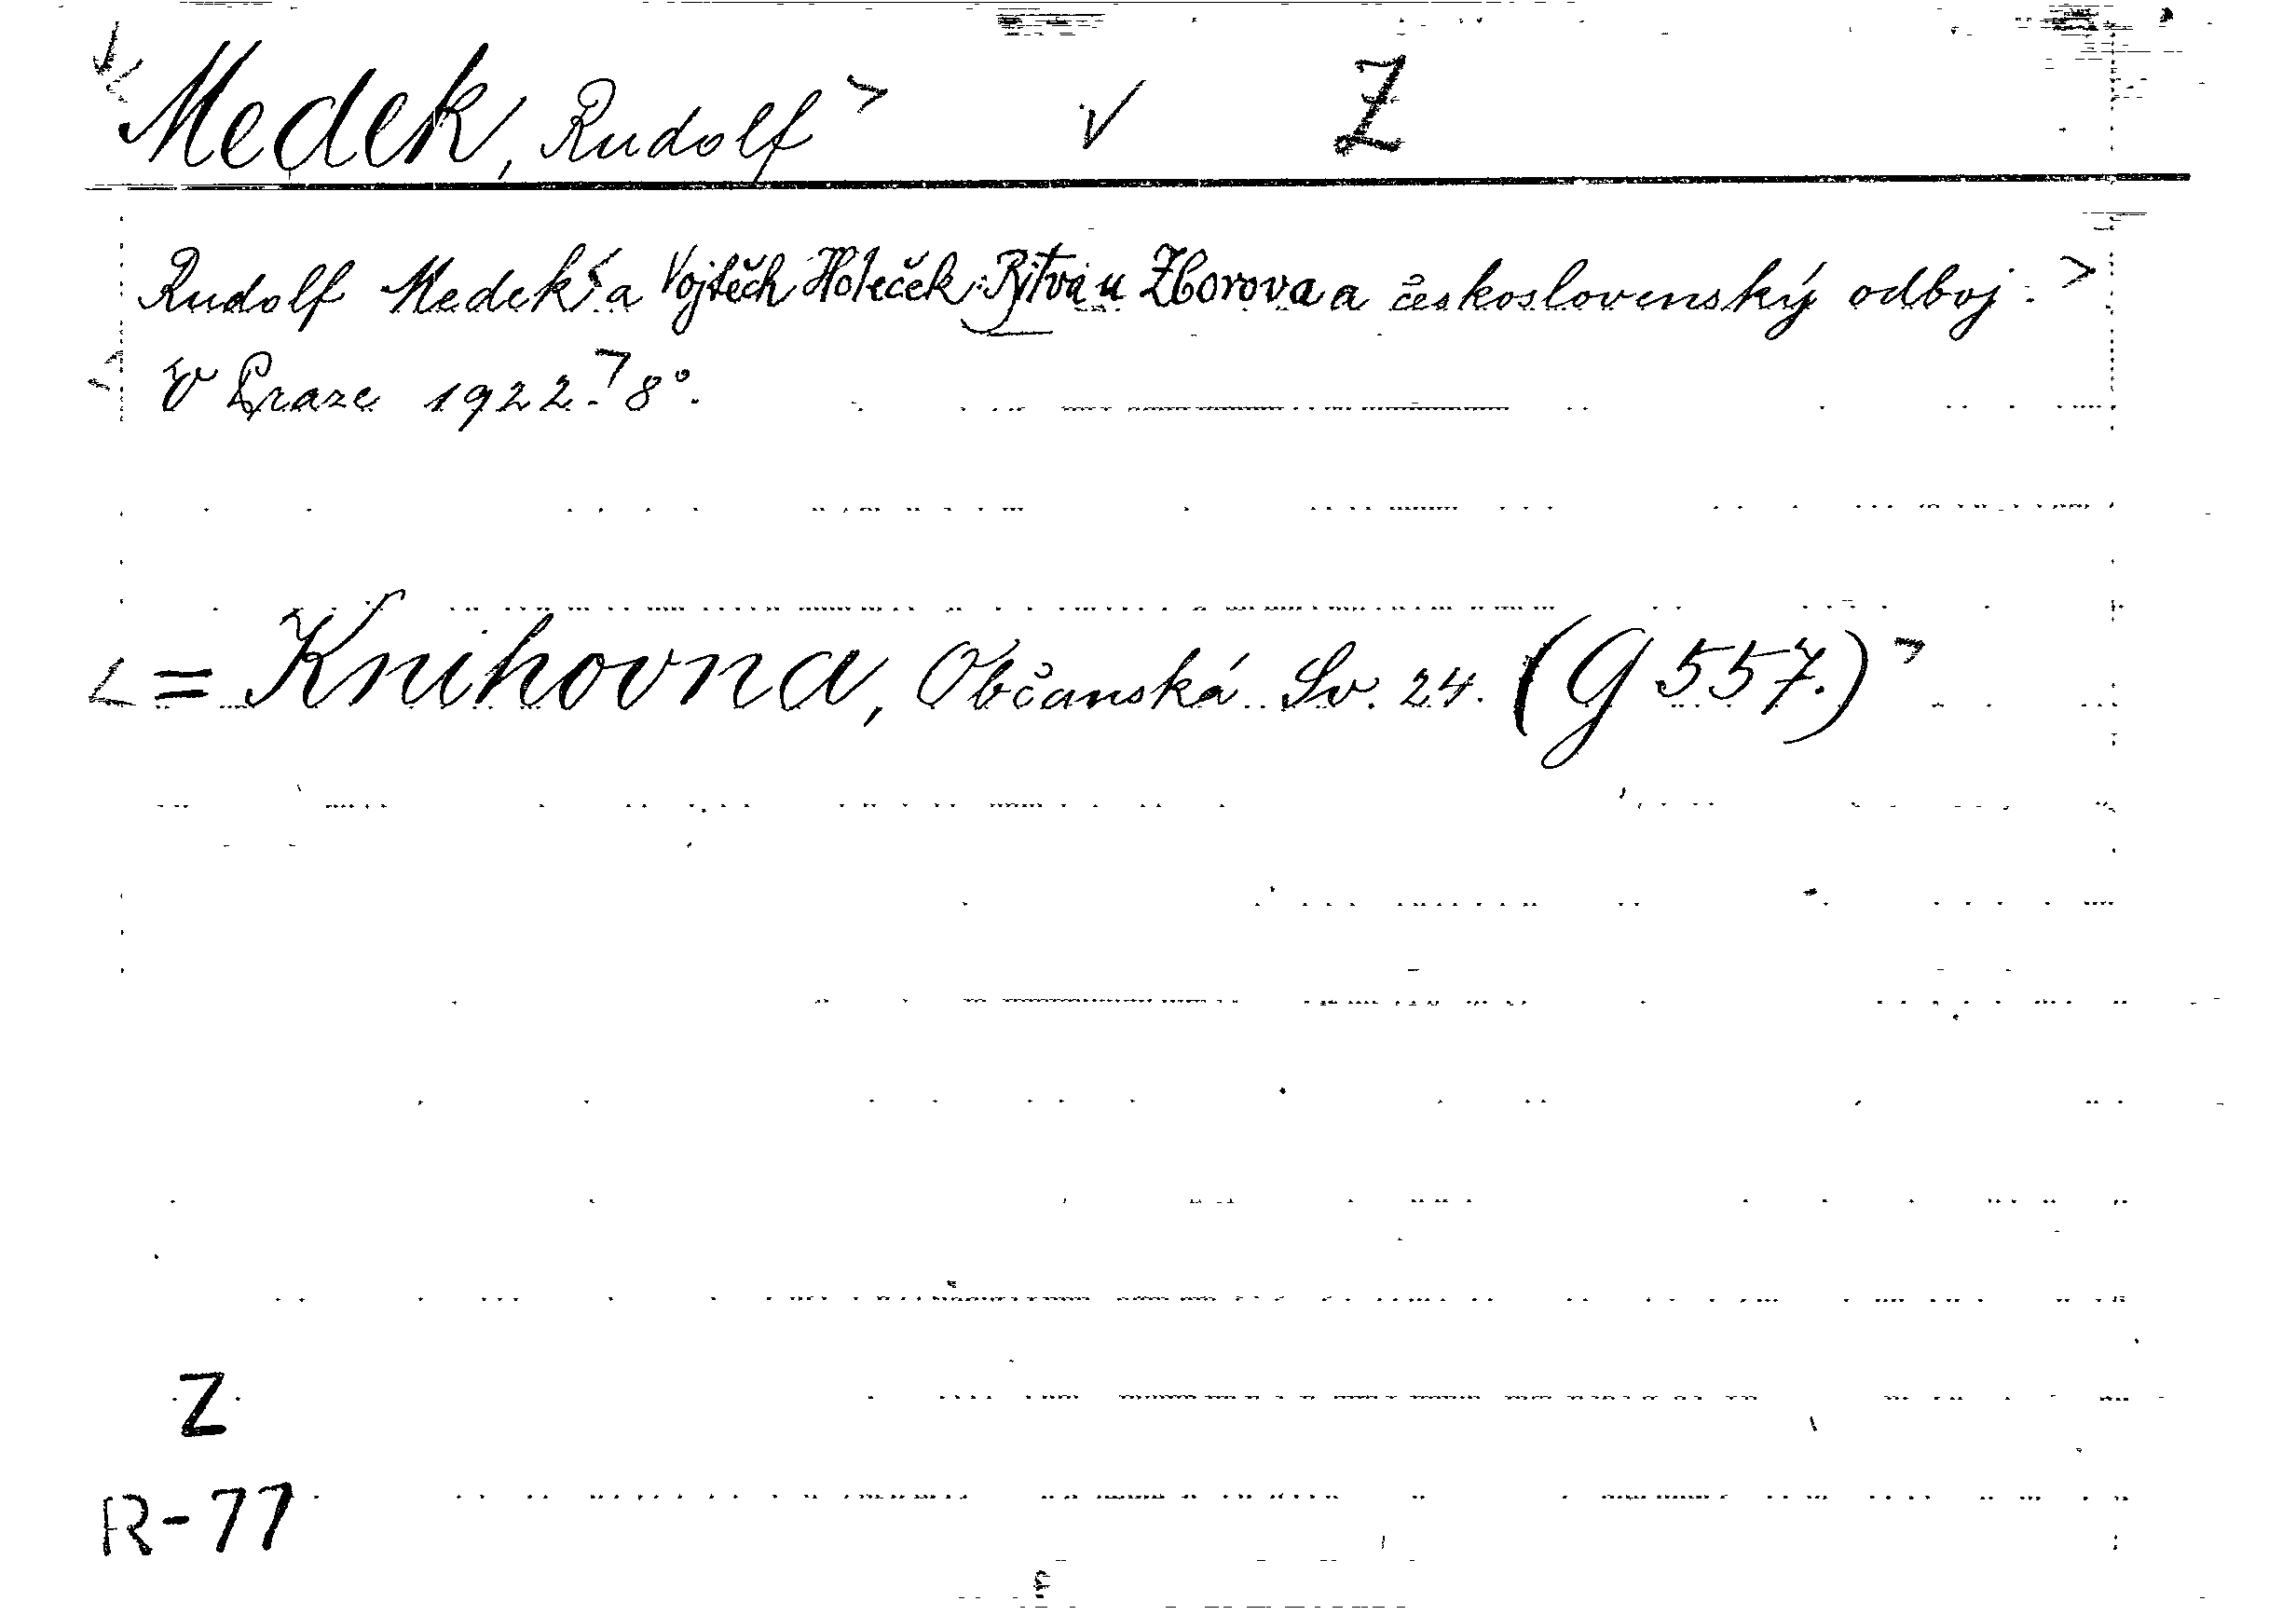 Medek, Rudolf √ Z
Rudolf Medek a Vojtěch Holeček: Bitva u Zborova a československý odboj.
V Praze 1922. 8°.
= Knihovna, Občanská. Sv. 24. (G 557.)
Z
R-77